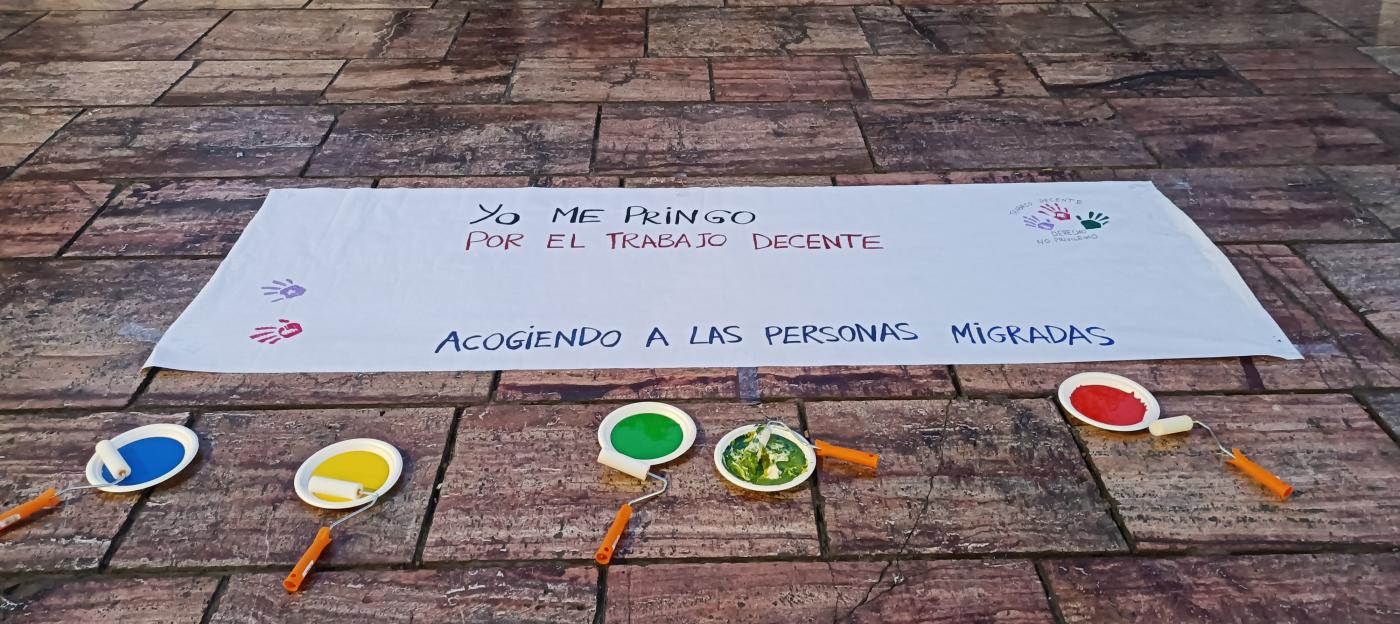 Yo ME PRiNGO
POR EL TRABAJO DECENTE
DECENTE
DERECHO
NO PRIVILEGIO
ACOGiENDO A LAS PERSONAS MiGRADAS